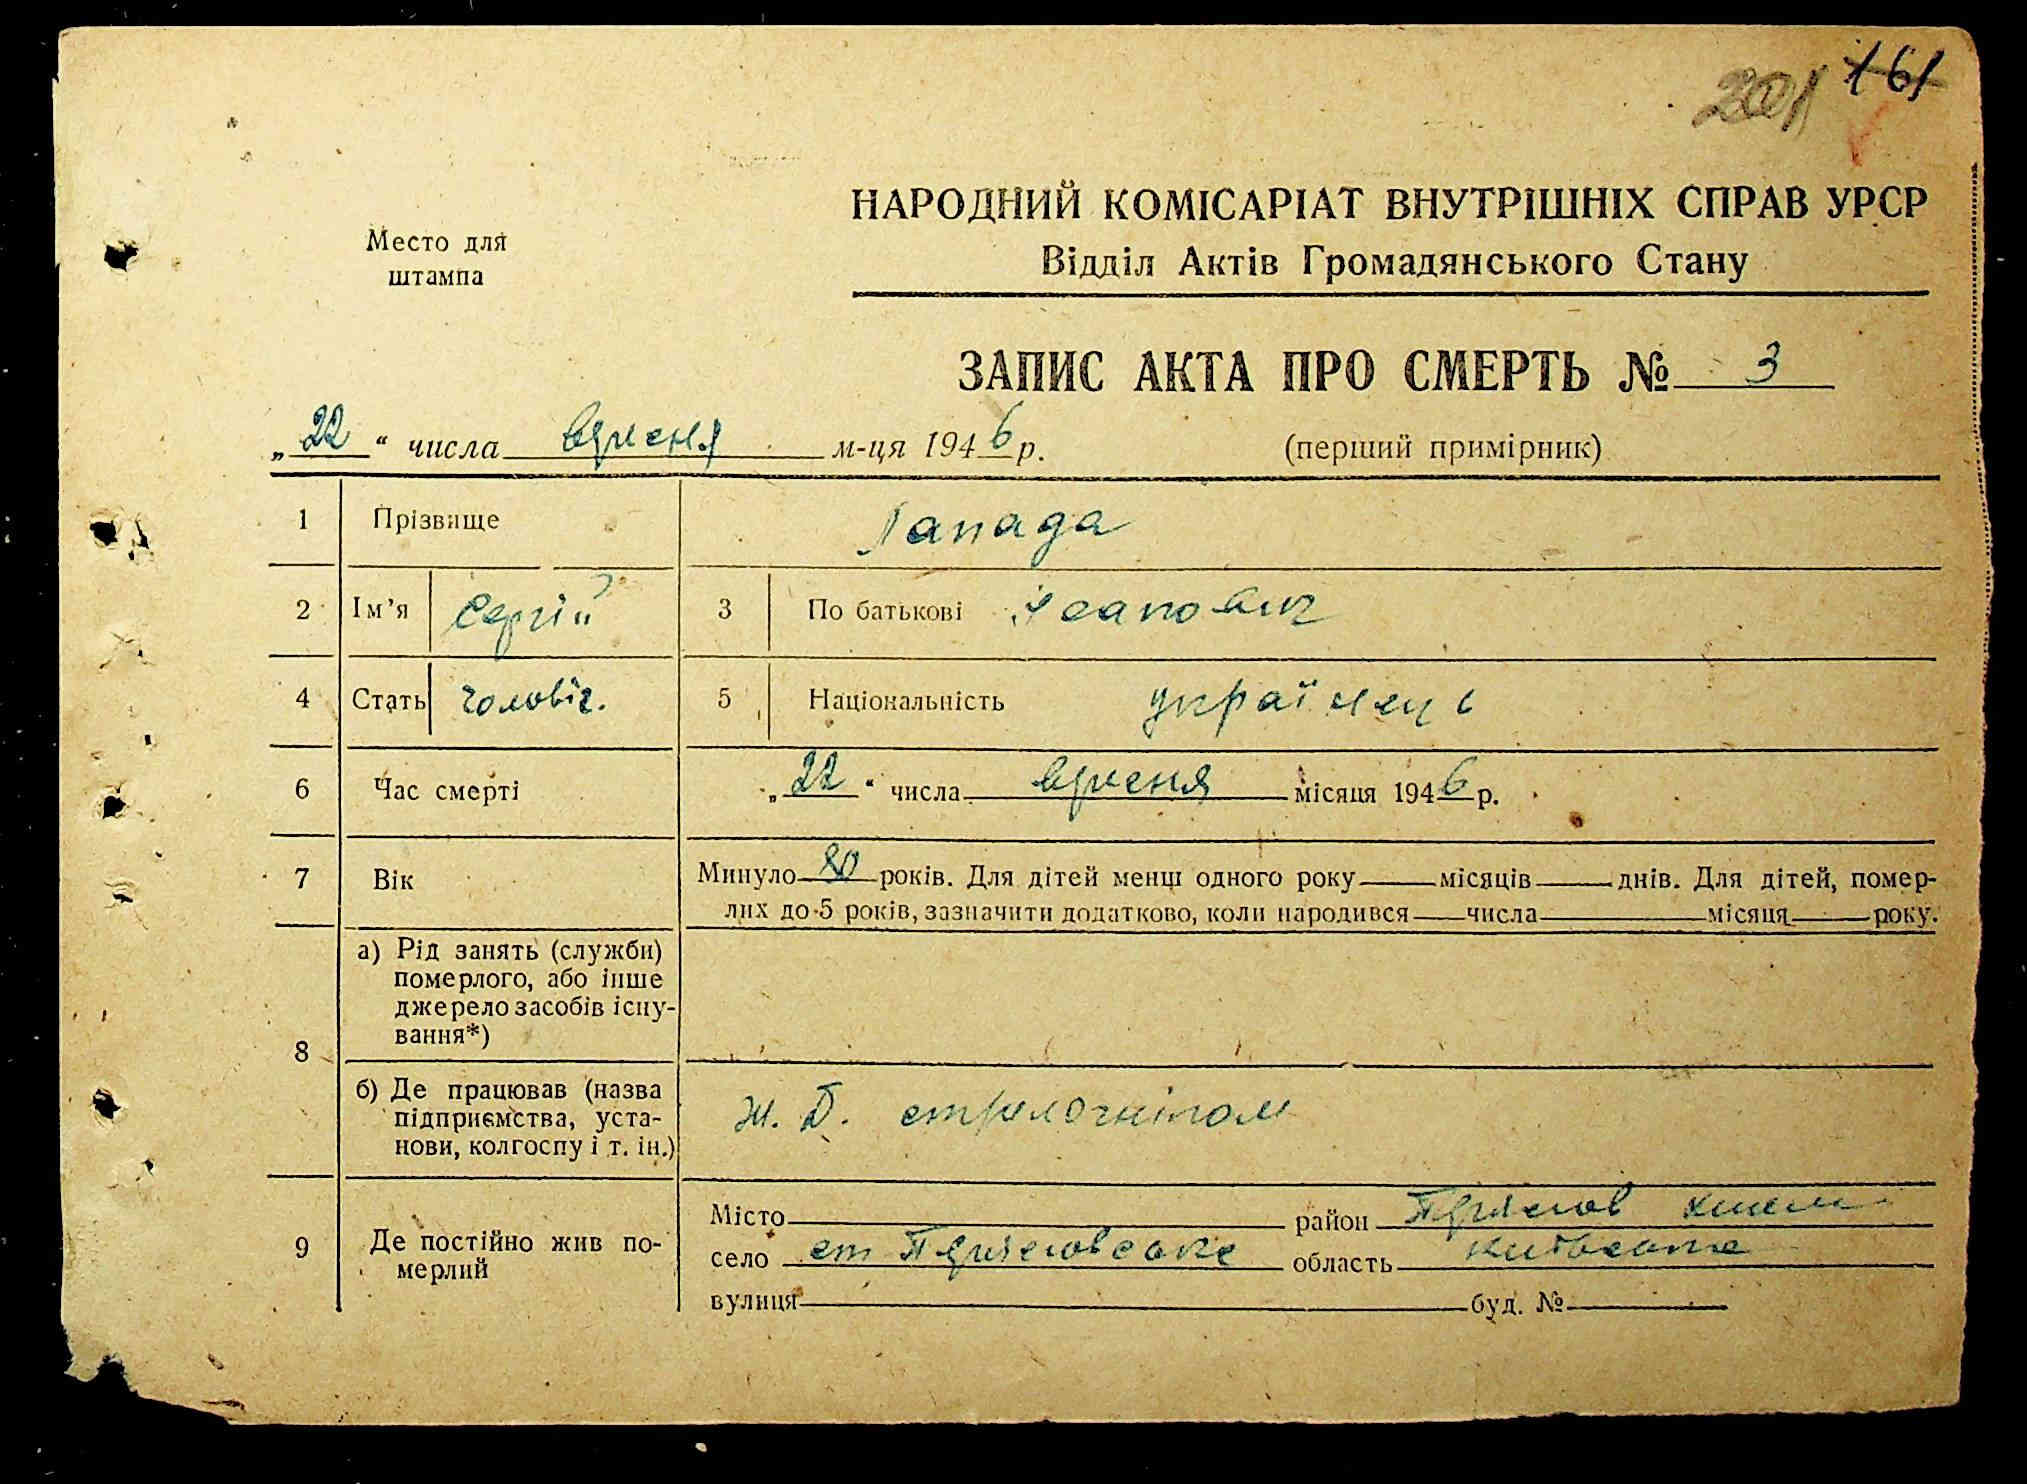 201 161
НАРОДНИЙ КОМІСАРІАТ ВНУТРІШНІХ СПРАВ УРСР
Место для
штампа
Відділ Актів Громадянського Стану
ЗАПИС АКТА ПРО СМЕРТЬ № 3
„22“ числа вересня м-ця 1946 р. (перший примірник)
1 Прізвище Лапада
2 Ім’я Сергій 3 По батькові
4 Стать чоловіч. 5 Національність українець
6 Час смерті „22“ числа вересня місяця 1946 р.
7 Вік Минуло 80 років. Для дітей менш одного року місяців днів. Для дітей, помер-
лих до 5 років, зазначити додатково, коли народився числа місяця року.
8 а) Рід занять (служби)
померлого, або інше
джерело засобів існу-
вання*)
б) Де працював (назва
підприємства, уста-
нови, колгоспу і т. ін.)
ж. д. стрелочніком
9 Де постійно жив по-
мерлий
Місто район
село ст область Київська
вулиця буд. №